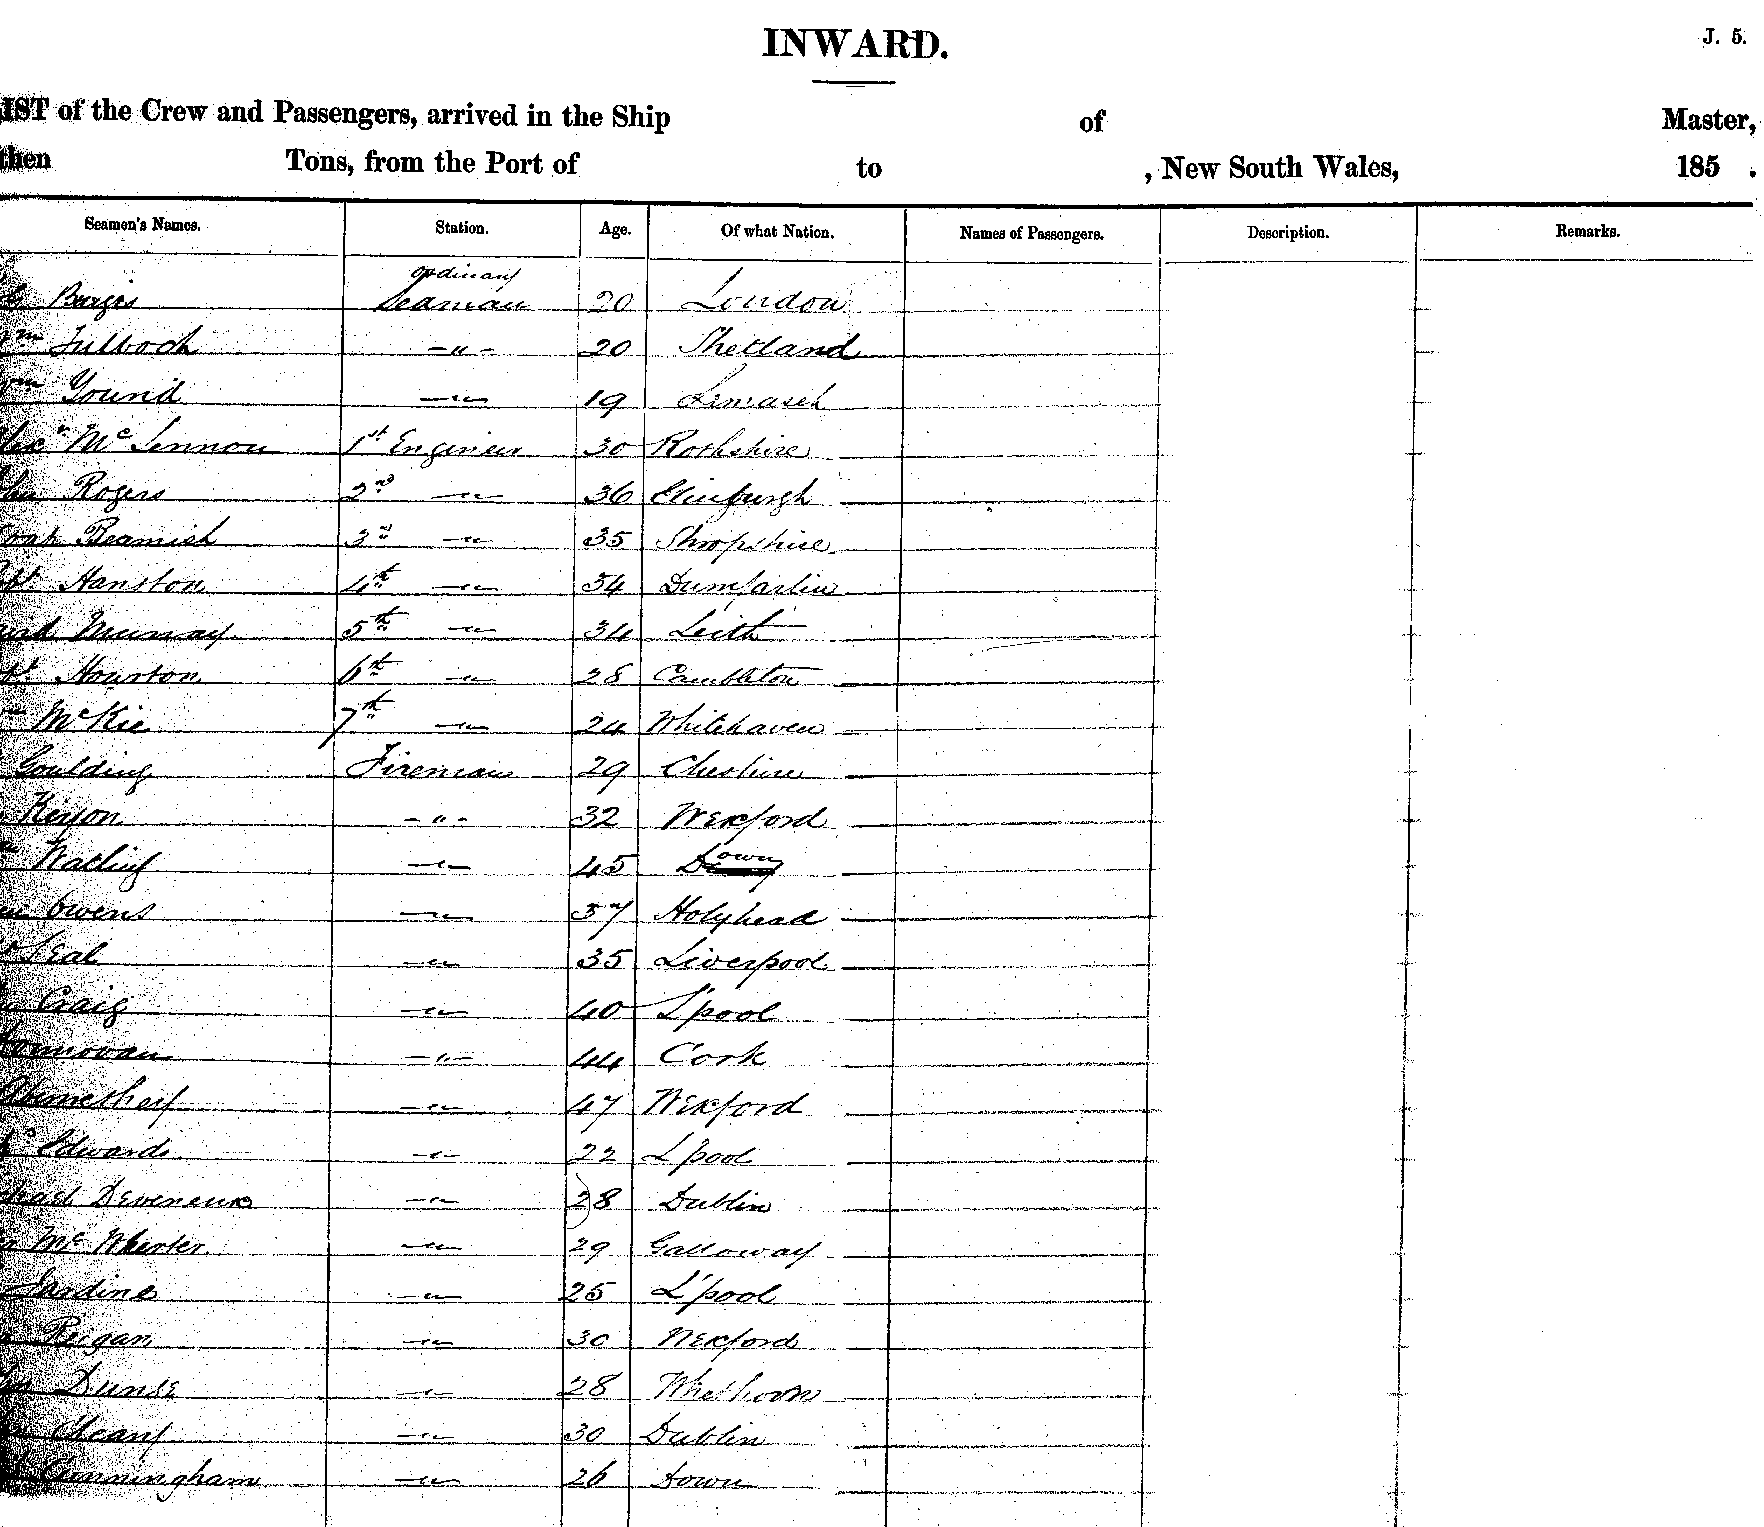 INWARD.
J. 5.
LIST of the Crew and Passengers, arrived in the Ship of Master,
then Tons, from the Port of to , New South Wales, 185 .
Seamen's Names. Station. Age. Of what Nation. Names of Passengers. Description. Remarks.
ordinary
Burges Seaman 20 London
Wm Fulboch -"- 20 Shetland
Wm Yound -"- 19
Alexr McLennon 1st Engineer 30 Rothshire
John Rogers 2nd -"- 36 Edinburgh
Beamish 3rd -"- 35 Shropshire
Hanston 4th -"- 34 Dumfarlin
Murray 5th -"- 34 Leith
Houston 6th -"- 28 Cambleton
McKie 7th -"- 24 Whitehaven
Goulding Fireman 29 Cheshire
Keyon -"- 32 Wexford
-"- 45 Down
Owens -"- 37 Holyhead
-"- 35 Liverpool
Craig -"- 40 L'pool
Donnovan -"- 44 Cork
-"- 47 Wexford
Edwards -"- 22 L'pool
Michael Devereux -"- 28 Dublin
McWherter -"- 29 Galloway
Jardine -"- 25 L'pool
Reigan -"- 30 Wexford
Dunse -"- 28
Cleary -"- 30 Dublin
Cunningham -"- 26 Down